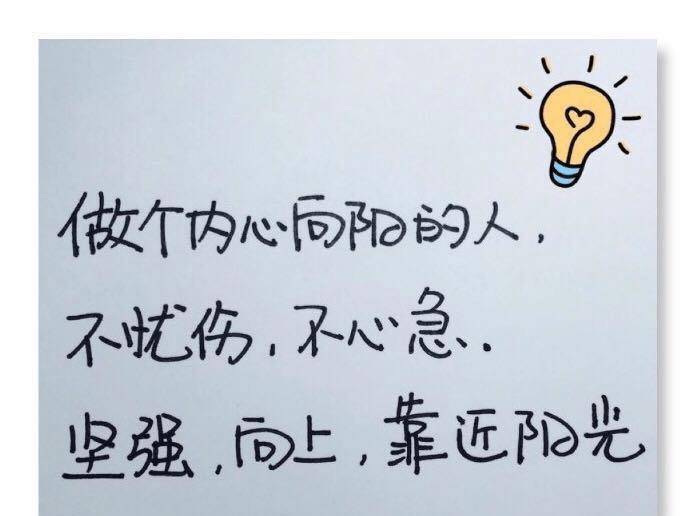 做个内心向阳的人，
不忧伤，不心急.
坚强，向上，靠近阳光